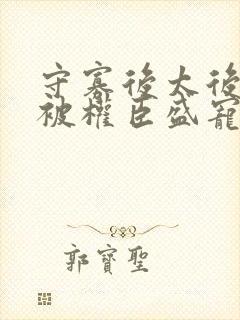 守寡後太後
被權臣盛寵
郭寶聖